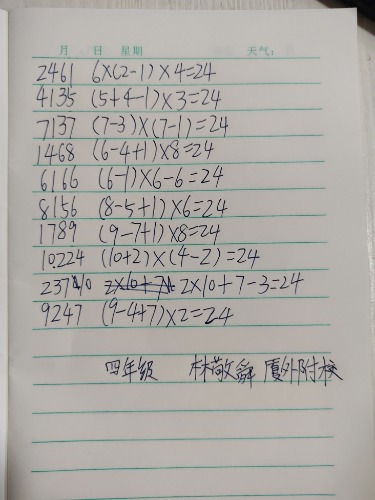 月 日 星期 天气：
2461 6×(2-1)×4=24
4135 (5+4-1)×3=24
7137 (7-3)×(7-1)=24
1468 (6-4+1)×8=24
6166 (6-1)×6-6=24
8156 (8-5+1)×6=24
1789 (9-7+1)×8=24
10224 (10+2)×(4-2)=24
23710 2×10+7-3=24
9247 (9-4+7)×2=24
四年级 林敬舜 厦外附校